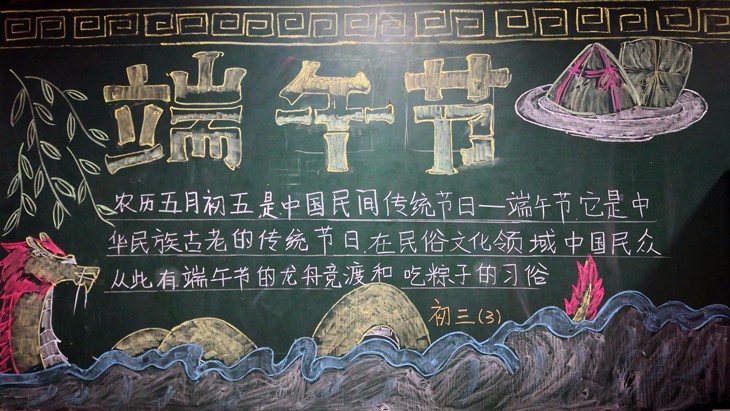 端午节
农历五月初五是中国民间传统节日—端午节.它是中
华民族古老的传统节日.在民俗文化领域中国民众
从此有端午节的龙舟竞渡和吃粽子的习俗
初三(3)